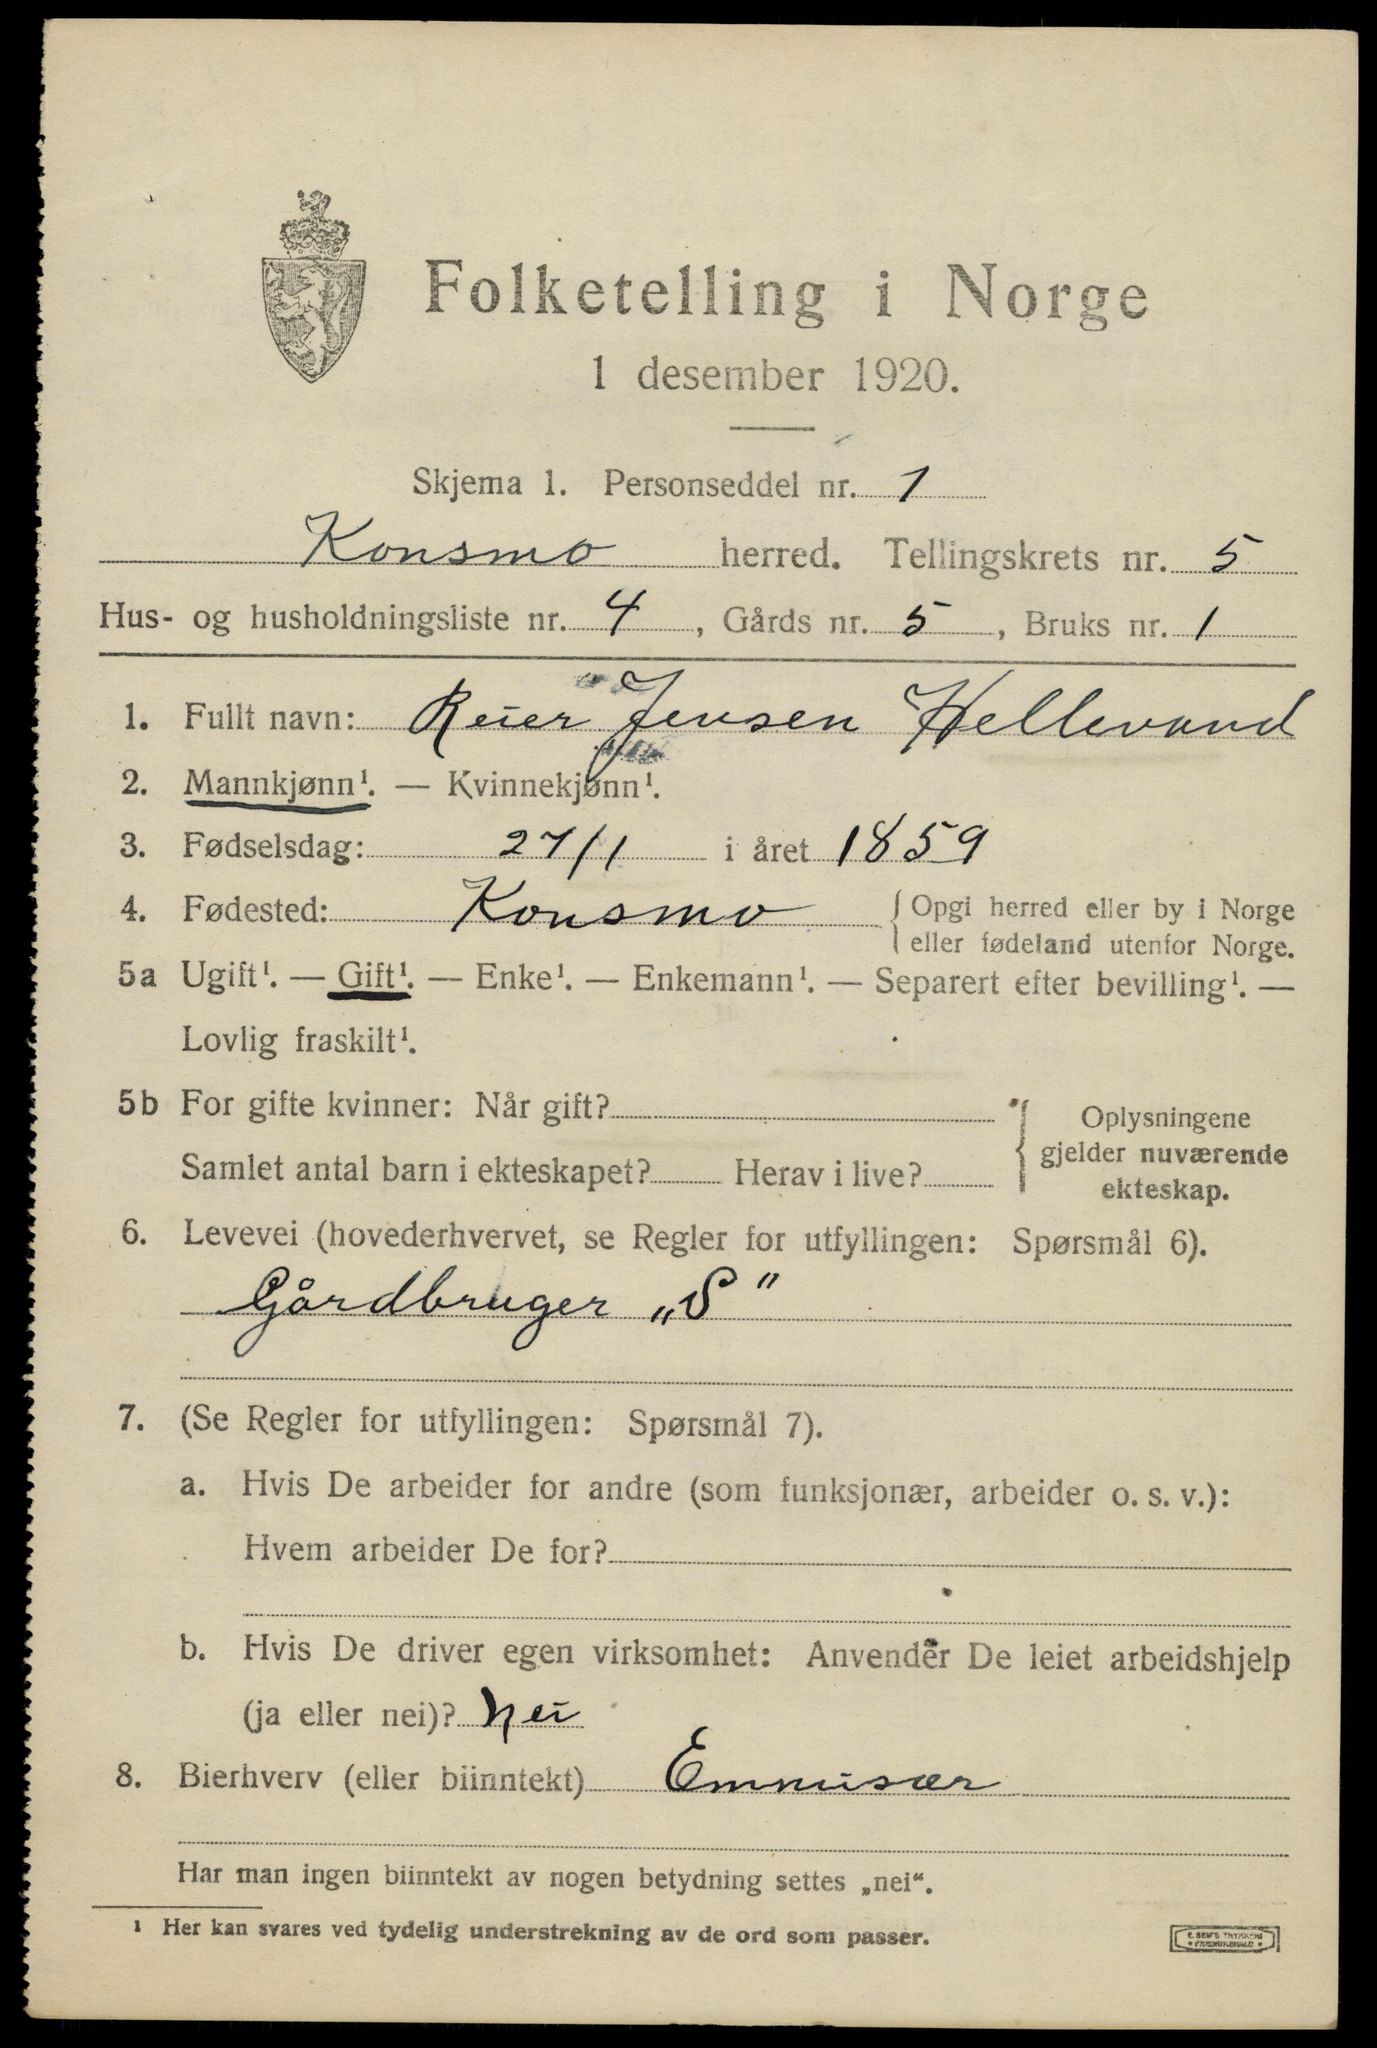 Folketelling i Norge
1 desember 1920.
Skjema 1. Personseddel nr. 1
Konsmo herred. Tellingskrets nr. 5
Hus- og husholdningsliste nr. 4, Gårds nr. 5, Bruks nr. 1
1. Fullt navn: Reier Jensen Hellevand
2. Mannkjønn¹. — Kvinnekjønn¹.
3. Fødselsdag: 27/1 i året 1859
4. Fødested: Konsmo { Opgi herred eller by i Norge
eller fødeland utenfor Norge.
5a Ugift¹. — Gift¹. — Enke¹. — Enkemann¹. — Separert efter bevilling¹. —
Lovlig fraskilt¹.
5b For gifte kvinner: Når gift?
Samlet antal barn i ekteskapet? Herav i live?
Oplysningene
gjelder nuværende
ekteskap.
6. Levevei (hovederhvervet, se Regler for utfyllingen: Spørsmål 6).
Gårdbruger „S"
7. (Se Regler for utfyllingen: Spørsmål 7).
a. Hvis De arbeider for andre (som funksjonær, arbeider o. s. v.):
Hvem arbeider De for?
b. Hvis De driver egen virksomhet: Anvender De leiet arbeidshjelp
(ja eller nei)? Nei
8. Bierhverv (eller biinntekt) Emmisær
Har man ingen biinntekt av nogen betydning settes „nei“.
¹ Her kan svares ved tydelig understrekning av de ord som passer.
E. SEM'S TRYKKERI
• FREDRIKSHALD •